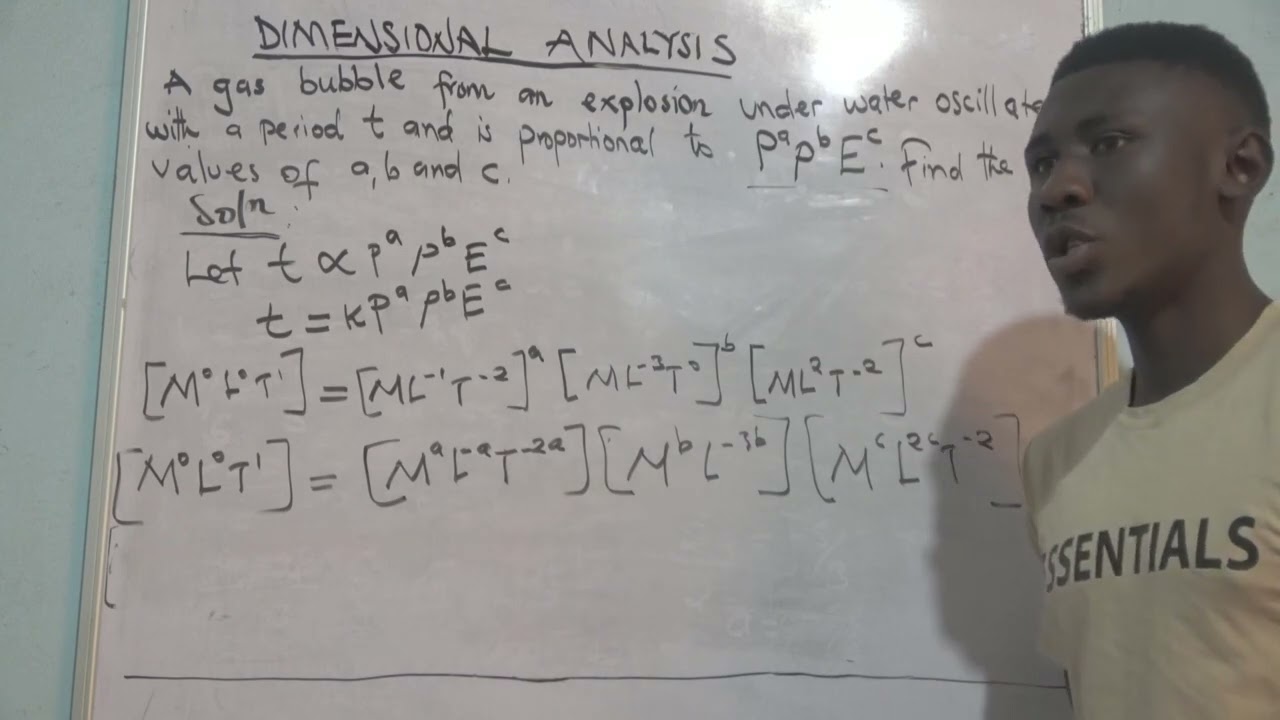 DIMENSIONAL ANALYSIS
A gas bubble from an explosion under water oscillate
with a period t and is proportional to PᵃρᵇEᶜ. Find the
values of a, b and c.
Soln:
Let t ∝ Pᵃ ρᵇ Eᶜ
t = KPᵃ ρᵇ Eᶜ
[M⁰L⁰T¹] = [ML⁻¹T⁻²]ᵃ [ML⁻³T⁰]ᵇ [ML²T⁻²]ᶜ
[M⁰L⁰T¹] = [MᵃL⁻ᵃT⁻²ᵃ][MᵇL⁻³ᵇ][MᶜL²ᶜT⁻²]
[
SSENTIALS